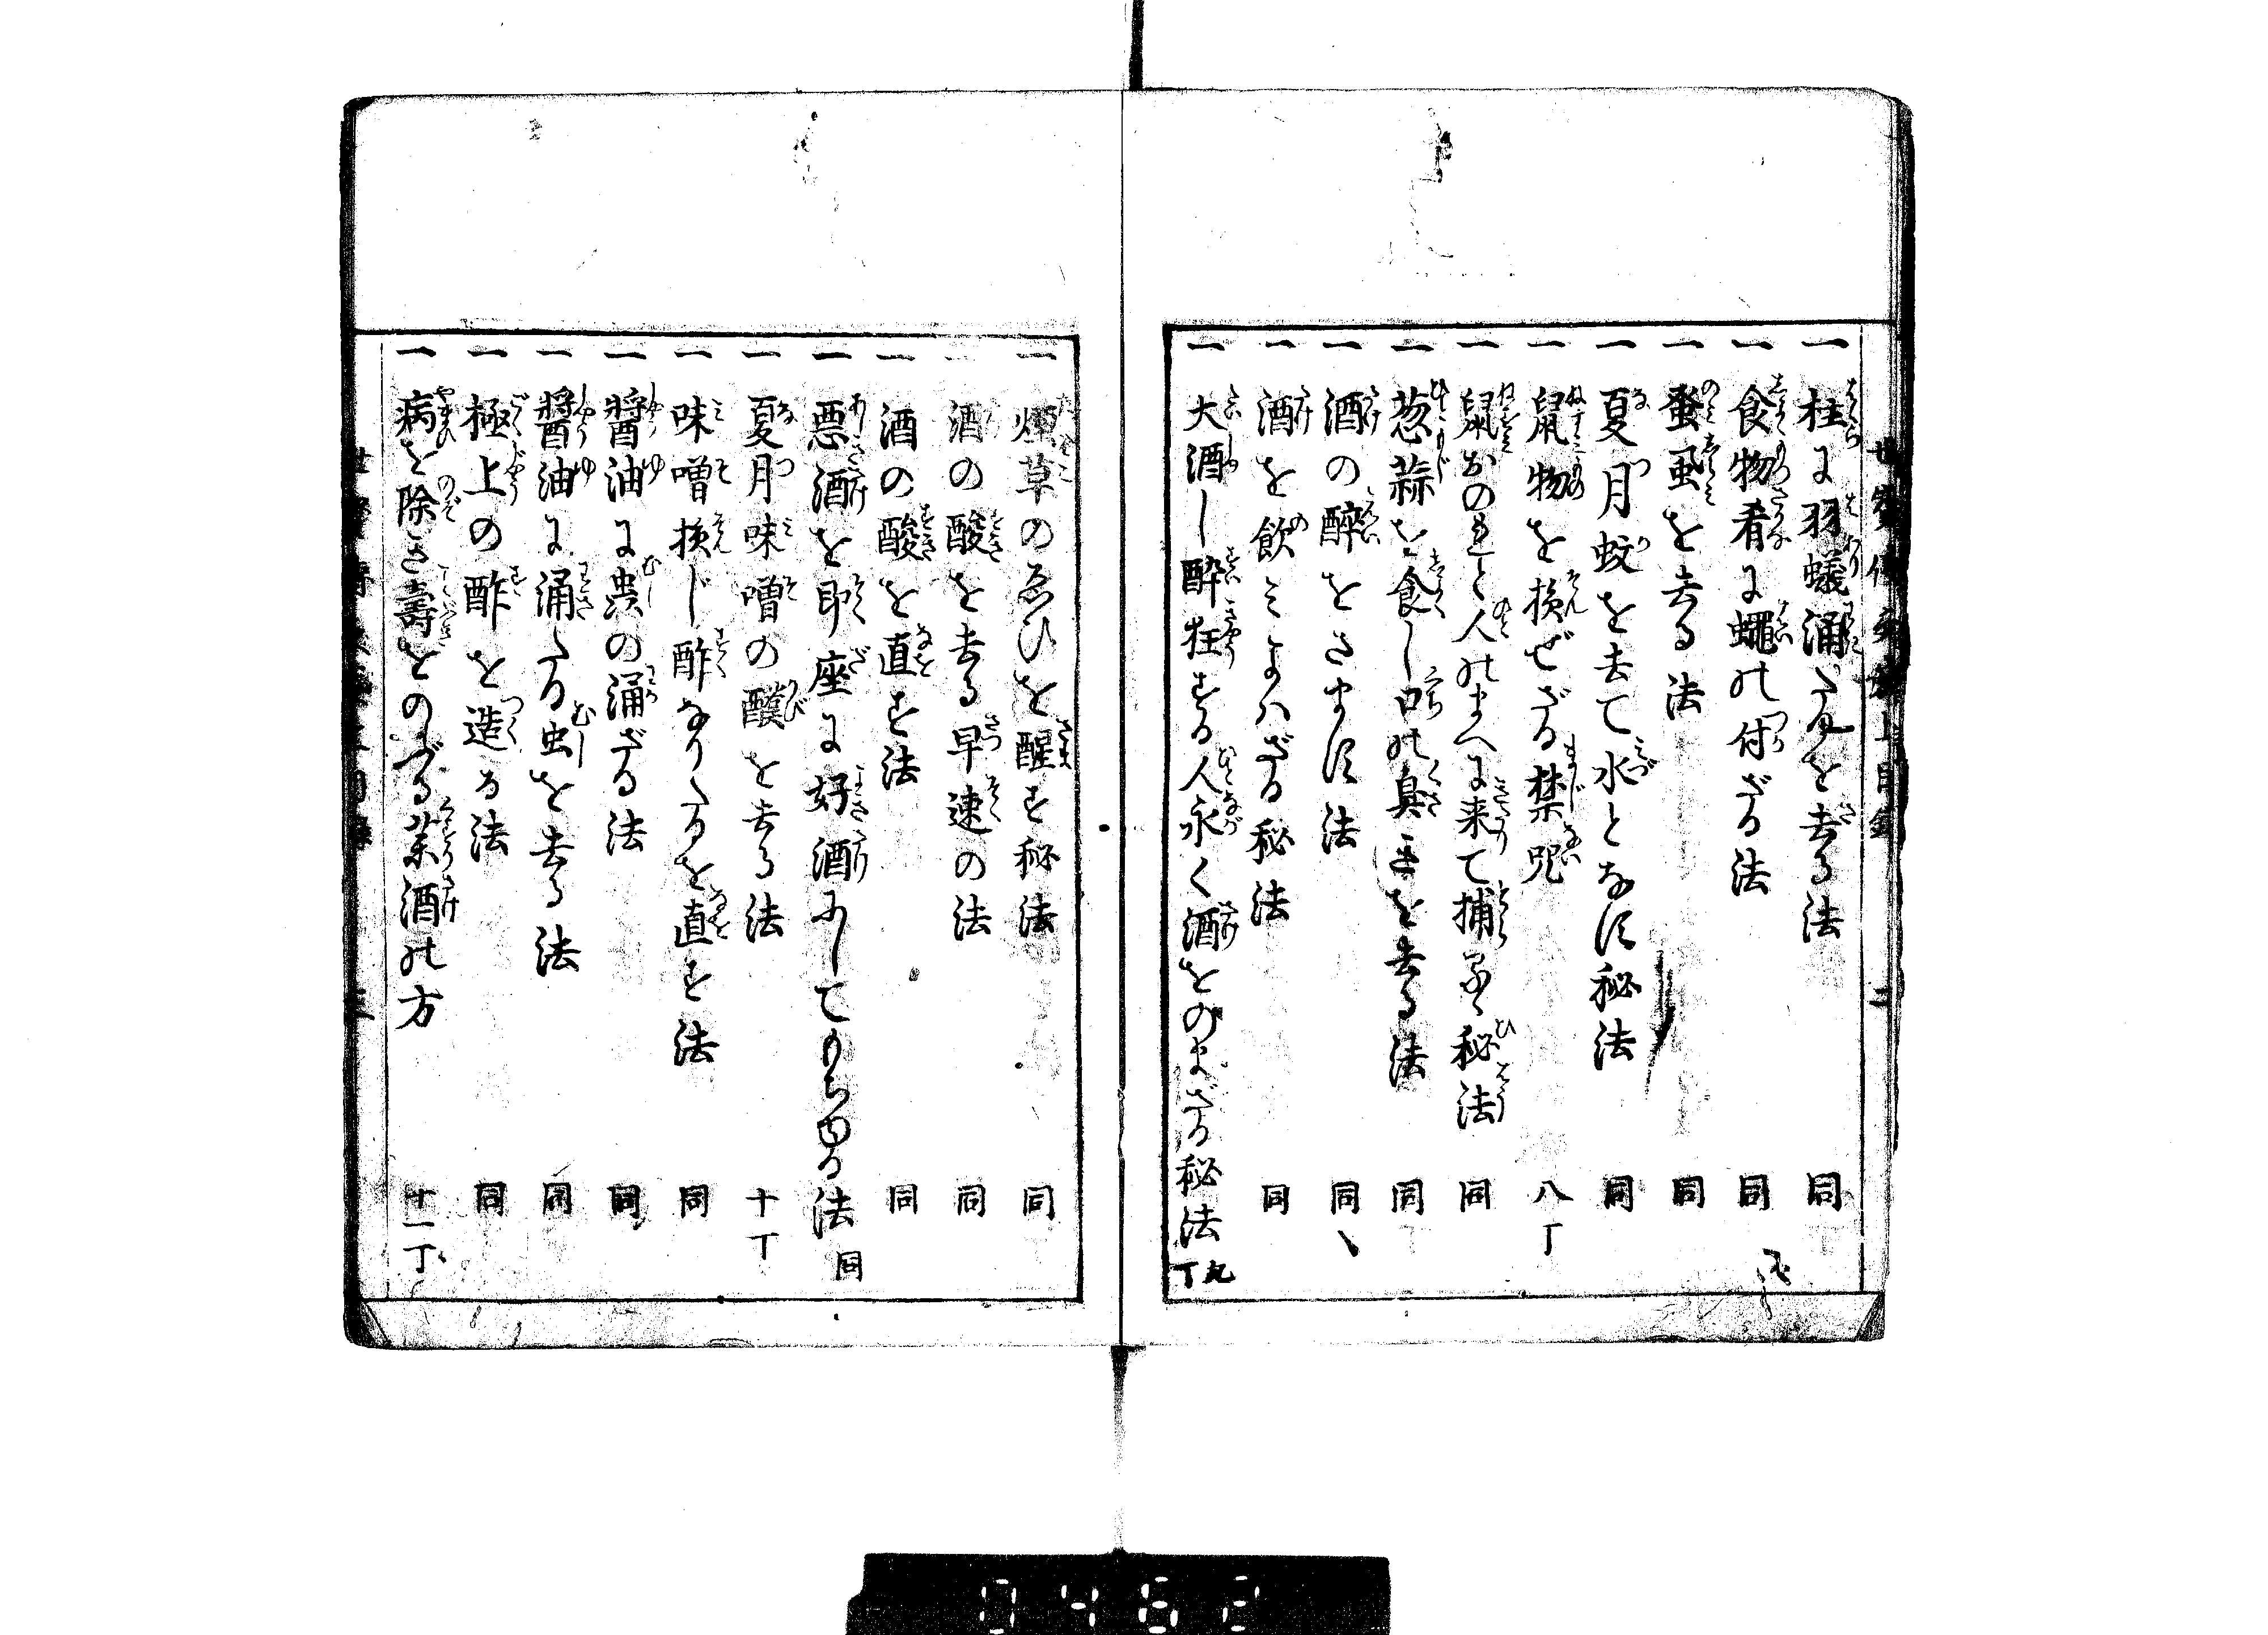 一 柱に羽蟻涌たるを去る法 同
一 食物肴に蠅の付ざる法 同
一 蚤虱を去る法 同
一 夏月蚊を去て水となす秘法 同
一 鼠物を損ぜざる禁咒 八丁
一 鼠おのれと人のまへに来て捕るゝ秘法 同
一 葱蒜を食し口の臭きを去る法 同
一 酒の酔をさます法 同
一 酒を飲てよハざる秘法 同
一 大酒し酔狂する人永く酒をのまざる秘法 九丁
一 煙草のゑひを醒す秘法 同
一 酒の酸を去る早速の法 同
一 酒の酸を直す法 同
一 悪酒を即座に好酒にしてもちゆる法 同
一 夏月味噌の醭を去る法 十丁
一 味噌損じ酢なりたるを直す法 同
一 醤油に虫の涌ざる法 同
一 醤油に涌たる虫を去る法 同
一 極上の酢を造る法 同
一 病を除き壽をのぶる薬酒の方 十一丁